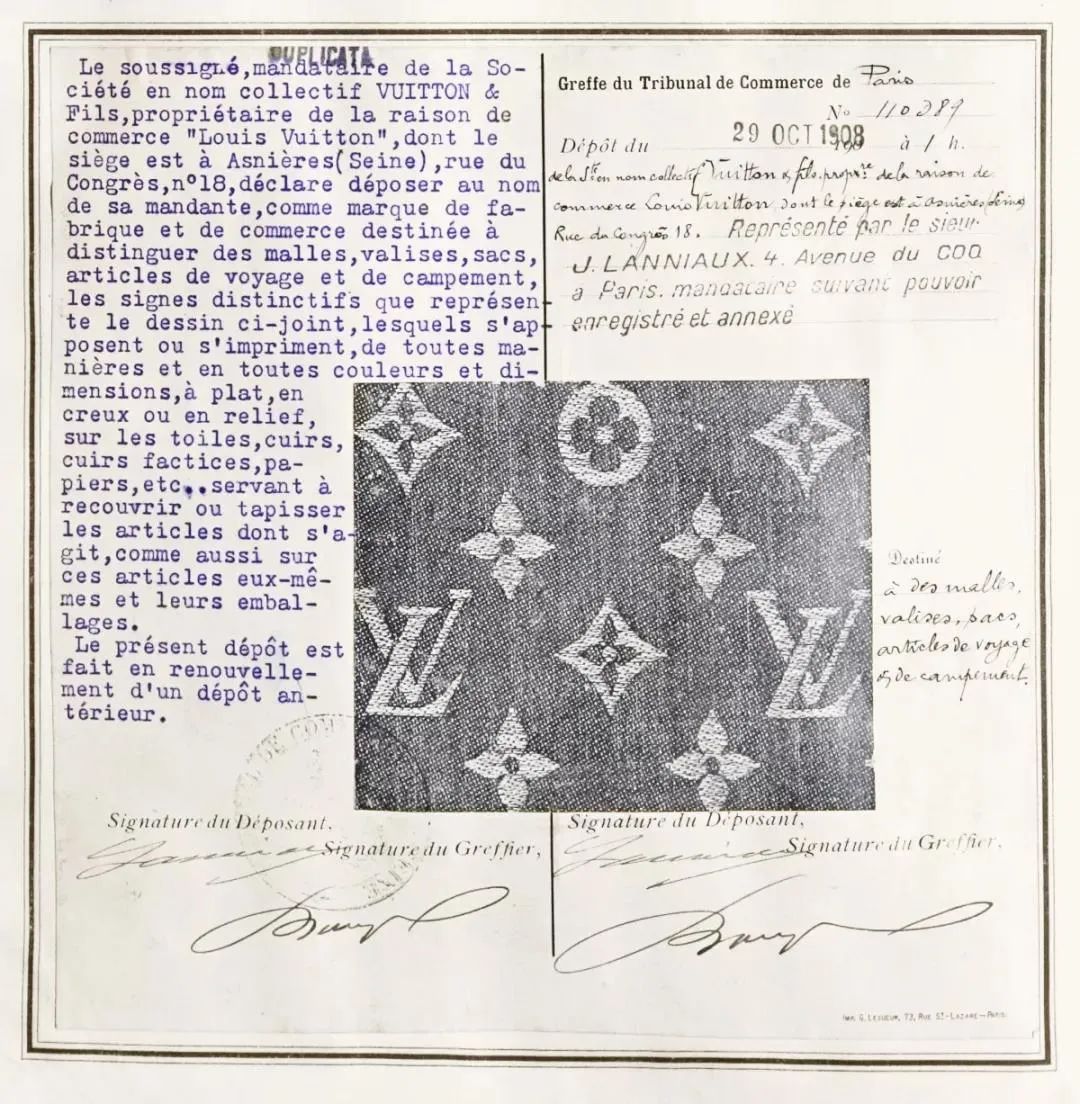 DUPLICATA
Le soussigné,mandataire de la So-
ciété en nom collectif VUITTON &
Fils,propriétaire de la raison de
commerce "Louis Vuitton",dont le
siège est à Asnières(Seine),rue du
Congrès,nº18,déclare déposer au nom
de sa mandante,comme marque de fa-
brique et de commerce destinée à
distinguer des malles,valises,sacs,
articles de voyage et de campement,
les signes distinctifs que représen-
te le dessin ci-joint,lesquels s'ap-
posent ou s'impriment,de toutes ma-
nières et en toutes couleurs et di-
mensions,à plat,en
creux ou en relief,
sur les toiles,cuirs,
cuirs factices,pa-
piers,etc..servant à
recouvrir ou tapisser
les articles dont s'a-
git,comme aussi sur
ces articles eux-mê-
mes et leurs embal-
lages.
Le présent dépôt est
fait en renouvelle-
ment d'un dépôt an-
térieur.
Signature du Déposant,
Signature du Greffier,
Greffe du Tribunal de Commerce de Paris
Nº 110289
Dépôt du 29 OCT 1908 à 1 h.
de la Sté en nom collectif Vuitton & fils. propre de la raison de
commerce Louis Vuitton, dont le siège est à Asnières (Seine)
Rue du Congrès 18. Représenté par le sieur
J. LANNIAUX. 4. Avenue du COQ
à Paris. mandataire suivant pouvoir
enregistré et annexé
LV
LV
Destiné
à des malles,
valises, sacs,
articles de voyage
& de campement.
Signature du Déposant,
Signature du Greffier,
IMP. G. LESUEUR, 73, RUE ST-LAZARE — PARIS